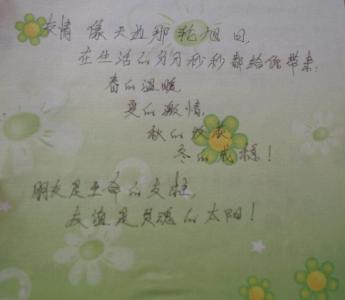 友情 像天边那轮旭日,
在生活的分分秒秒都给你带来:
春的温暖,
夏的激情,
秋的收获
冬的成穗!
朋友是生命的支柱,
友谊是灵魂的太阳!